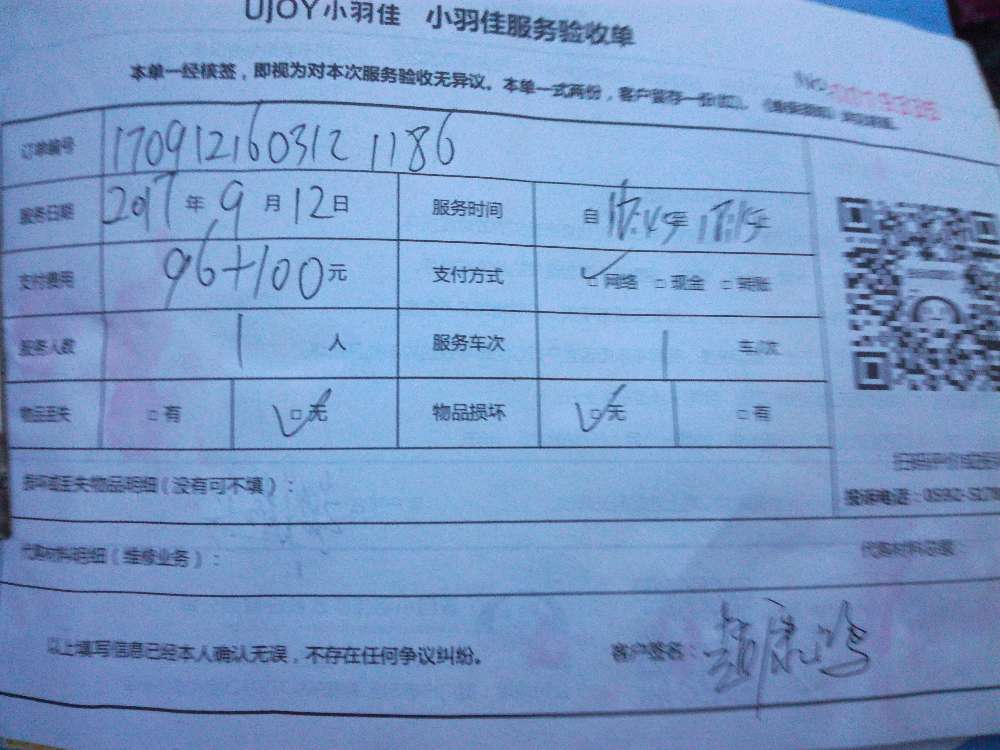 UJOY小羽佳 小羽佳服务验收单
本单一经核签，即视为对本次服务验收无异议。本单一式两份，客户留存一份
No
订单编号 170912160312 1186
服务日期 2017 年 9 月 12 日 服务时间 自
支付费用 96+100 元 支付方式 ✓□网络 □现金 □转账
服务人数 1 人 服务车次 1 车/次
物品丢失 □有 ✓□无 物品损坏 ✓□无 □有
损坏或丢失物品明细（没有可不填）：
投诉电话：0592-
代购材料明细（维修业务）： 代购材料总额：
以上填写信息已经本人确认无误，不存在任何争议纠纷。 客户签名：